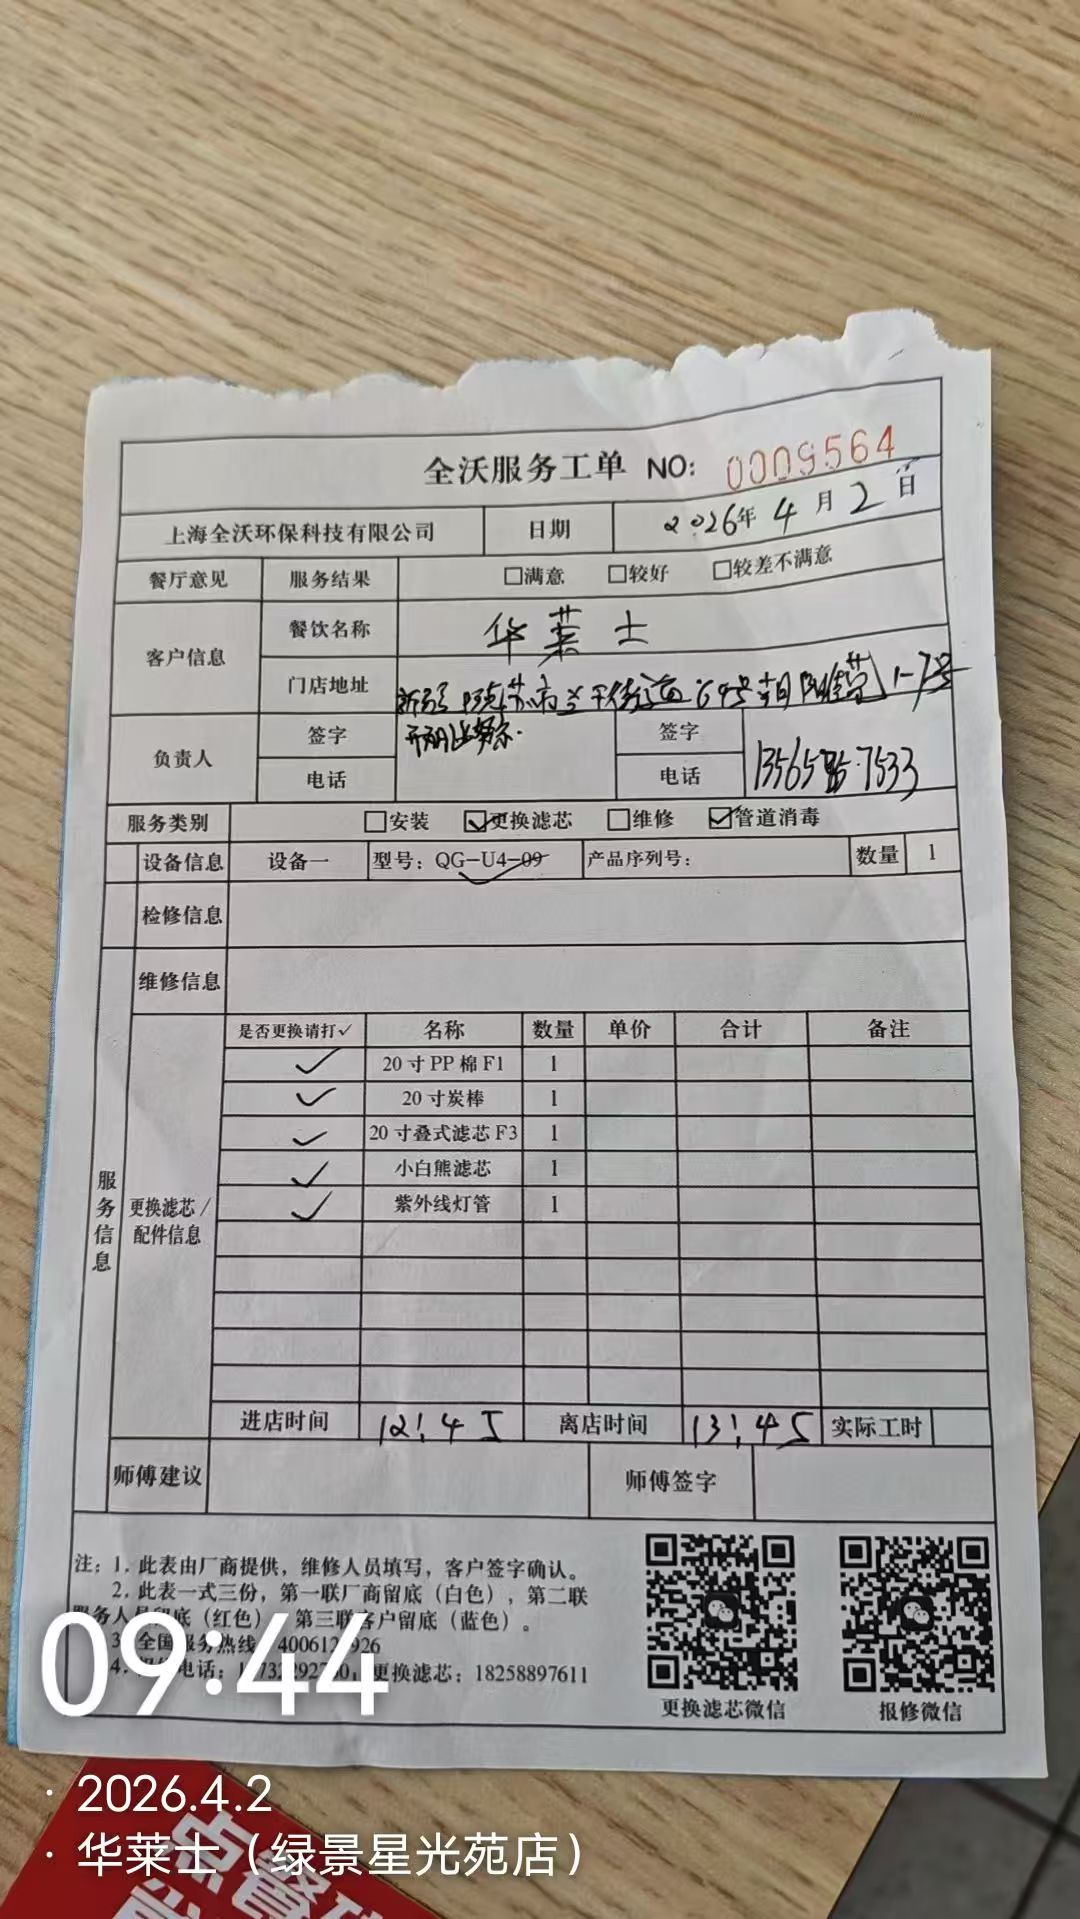 全沃服务工单 NO: 0009564
上海全沃环保科技有限公司 日期 2026年 4 月 2 日
餐厅意见 服务结果 □满意 □较好 □较差不满意
客户信息 餐饮名称 华莱士
门店地址 1-7号
负责人 签字 签字
电话 电话 7533
服务类别 □安装 ☑更换滤芯 □维修 ☑管道消毒
设备信息 设备一 型号：QG-U4-09 产品序列号： 数量 1
检修信息
维修信息
服务信息
更换滤芯/
配件信息
是否更换请打✓ 名称 数量 单价 合计 备注
✓ 20寸PP棉F1 1
✓ 20寸炭棒 1
✓ 20寸叠式滤芯F3 1
✓ 小白熊滤芯 1
✓ 紫外线灯管 1
进店时间 12:45 离店时间 13:45 实际工时
师傅建议 师傅签字
注：1. 此表由厂商提供，维修人员填写，客户签字确认。
2. 此表一式三份，第一联厂商留底（白色），第二联
服务人员留底（红色），第三联客户留底（蓝色）。
3. 全国服务热线
4. 电话： 更换滤芯：18258897611
更换滤芯微信 报修微信
09:44
· 2026.4.2
· 华莱士（绿景星光苑店）
点餐